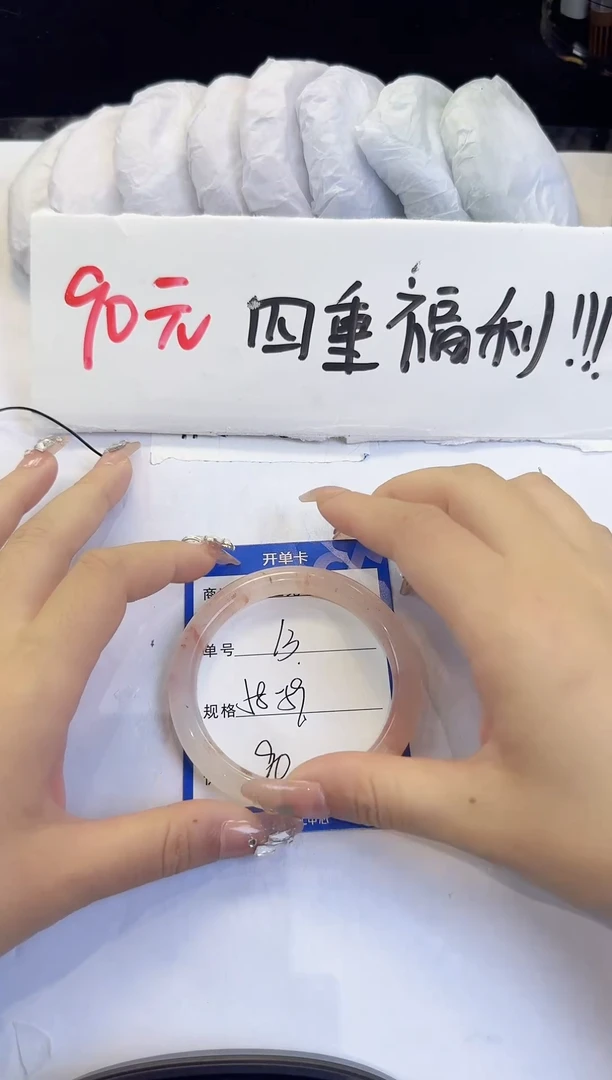 90元 四重福利!!!
开单卡
商
单号 13
规格 58-59
90